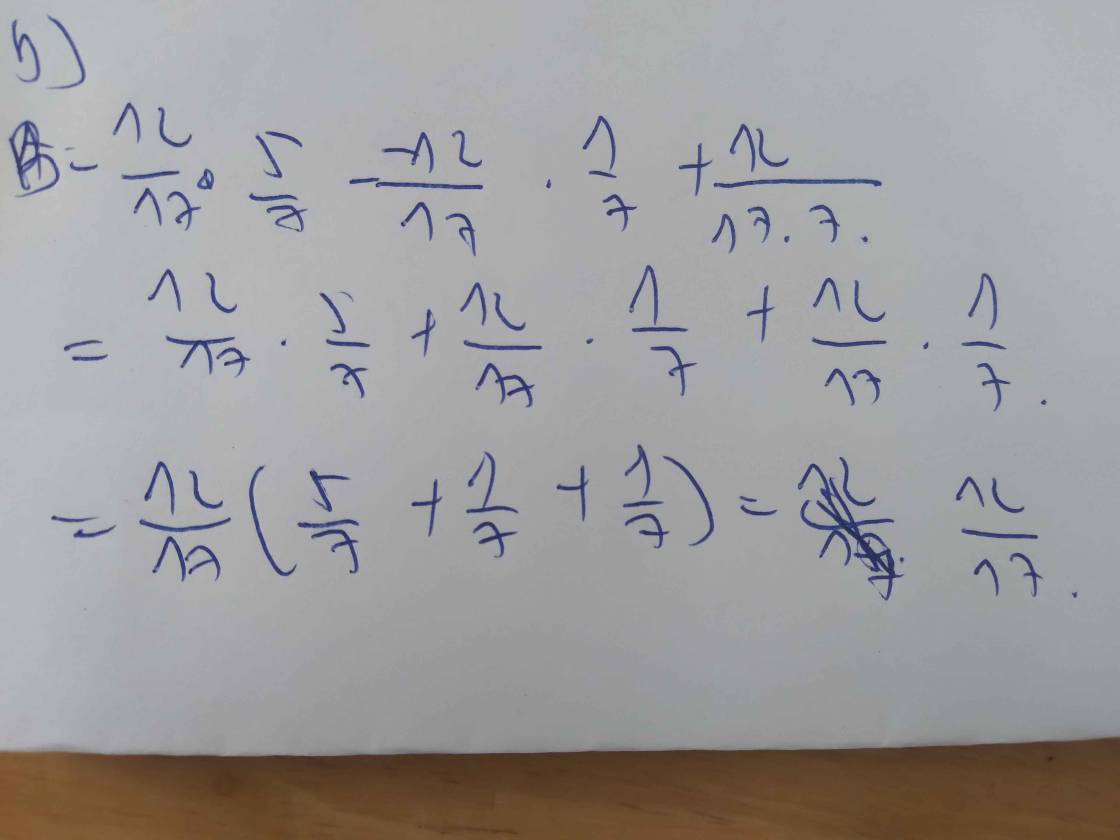 b)
B = \frac{12}{17} \cdot \frac{5}{7} - \frac{-12}{17} \cdot \frac{1}{7} + \frac{12}{17.7.}
= \frac{12}{17} \cdot \frac{5}{7} + \frac{12}{17} \cdot \frac{1}{7} + \frac{12}{17} \cdot \frac{1}{7}.
= \frac{12}{17} ( \frac{5}{7} + \frac{1}{7} + \frac{1}{7} ) = \frac{12}{17}.